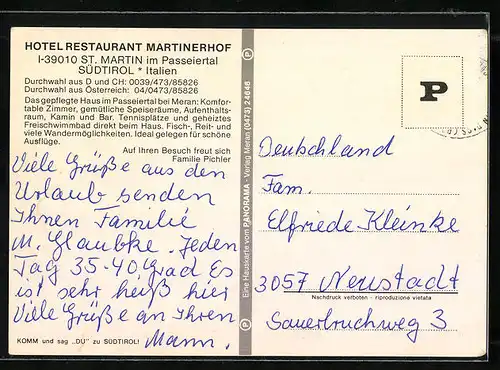 HOTEL RESTAURANT MARTINERHOF
I-39010 ST. MARTIN im Passeiertal
SÜDTIROL * Italien
Durchwahl aus D und CH: 0039/473/85826
Durchwahl aus Österreich: 04/0473/85826
Das gepflegte Haus im Passeiertal bei Meran: Komfor-
table Zimmer, gemütliche Speiseräume, Aufenthalts-
raum, Kamin und Bar. Tennisplätze und geheiztes
Freischwimmbad direkt beim Haus. Fisch-, Reit- und
viele Wandermöglichkeiten. Ideal gelegen für schöne
Ausflüge.
Auf Ihren Besuch freut sich
Familie Pichler
Viele Grüße aus den
Urlaub senden
Ihnen Familie
M. Glaubke. Jeden
Tag 35-40 Grad Es
ist sehr heiß hier
Viele Grüße an Ihren
Mann.
KOMM und sag „DU" zu SÜDTIROL!
P Eine Hauskarte vom PANORAMA - Verlag Meran (0473) 24648 P
P
Deutschland
Fam.
Elfriede Kleinke
3057 Neustadt
Nachdruck verboten - riproduzione vietata
Sauerbruchweg 3